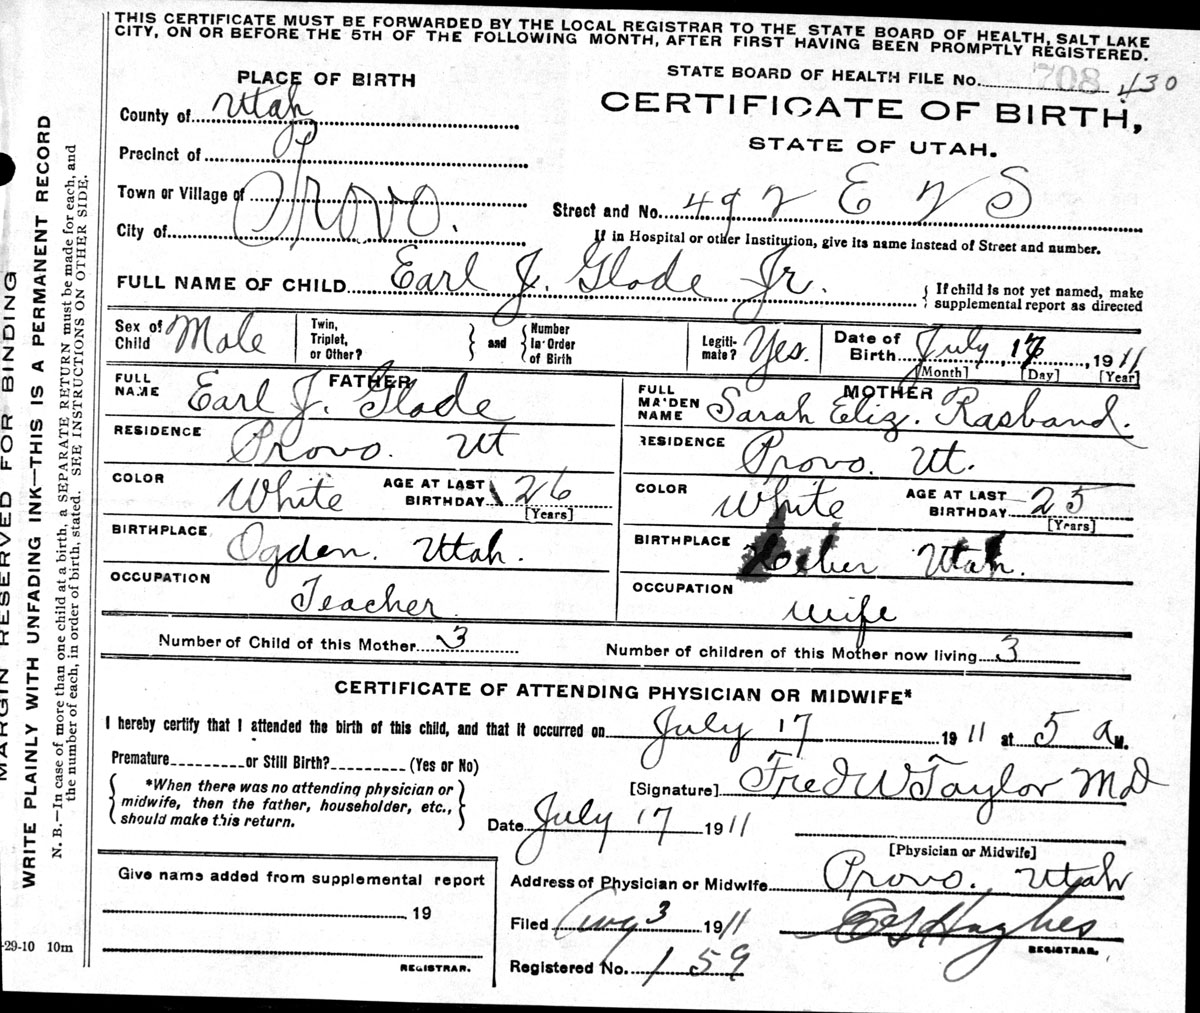 THIS CERTIFICATE MUST BE FORWARDED BY THE LOCAL REGISTRAR TO THE STATE BOARD OF HEALTH, SALT LAKE
CITY, ON OR BEFORE THE 5TH OF THE FOLLOWING MONTH, AFTER FIRST HAVING BEEN PROMPTLY REGISTERED.
MARGIN RESERVED FOR BINDING
WRITE PLAINLY WITH UNFADING INK—THIS IS A PERMANENT RECORD
N. B.—In case of more than one child at a birth, a SEPARATE RETURN must be made for each, and
the number of each, in order of birth, stated. SEE INSTRUCTIONS ON OTHER SIDE.
PLACE OF BIRTH
County of Utah
Precinct of
Town or Village of
City of Provo.
STATE BOARD OF HEALTH FILE No. 708 430
CERTIFICATE OF BIRTH,
STATE OF UTAH.
Street and No. 492 E 2 S
If in Hospital or other Institution, give its name instead of Street and number.
FULL NAME OF CHILD Earl J. Glade Jr.
If child is not yet named, make
supplemental report as directed
Sex of Child Male
Twin, Triplet, or Other?
and
Number in Order of Birth
Legiti-mate? Yes.
Date of Birth July, 17, 1911
[Month] [Day] [Year]
FATHER
FULL NAME Earl J. Glade
RESIDENCE Provo. Ut
COLOR White AGE AT LAST BIRTHDAY 26
[Years]
BIRTHPLACE Ogden. Utah.
OCCUPATION Teacher
MOTHER
FULL MAIDEN NAME Sarah Eliz. Rasband.
RESIDENCE Provo. Ut.
COLOR White AGE AT LAST BIRTHDAY 25
[Years]
BIRTHPLACE Heber Utah.
OCCUPATION Wife
Number of Child of this Mother 3
Number of children of this Mother now living 3
CERTIFICATE OF ATTENDING PHYSICIAN OR MIDWIFE*
I hereby certify that I attended the birth of this child, and that it occurred on July 17 1911 at 5 a M.
Premature or Still Birth? (Yes or No)
*When there was no attending physician or
midwife, then the father, householder, etc.,
should make this return.
[Signature] Fred W Taylor MD
Date July 17 1911
[Physician or Midwife]
Give name added from supplemental report
19
REGISTRAR.
Address of Physician or Midwife Provo, Utah
Filed Aug 3 1911
Hughes
REGISTRAR.
Registered No. 159
-29-10 10m